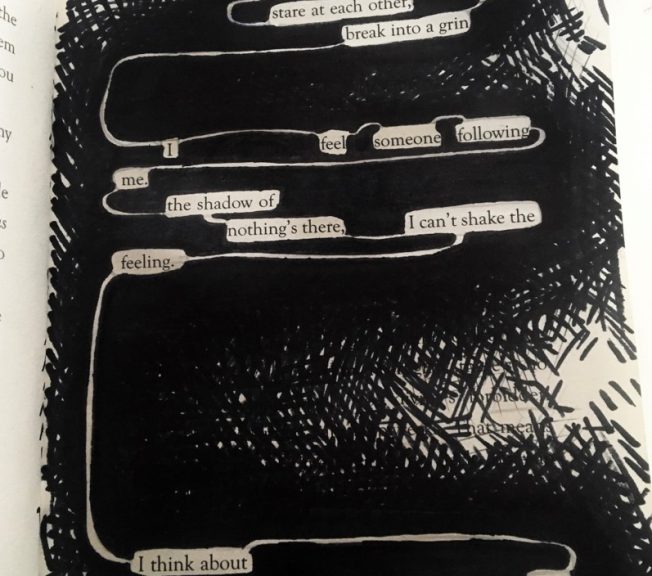 stare at each other,
break into a grin
I feel someone following
me.
the shadow of
nothing's there, I can't shake the
feeling.
that means
I think about